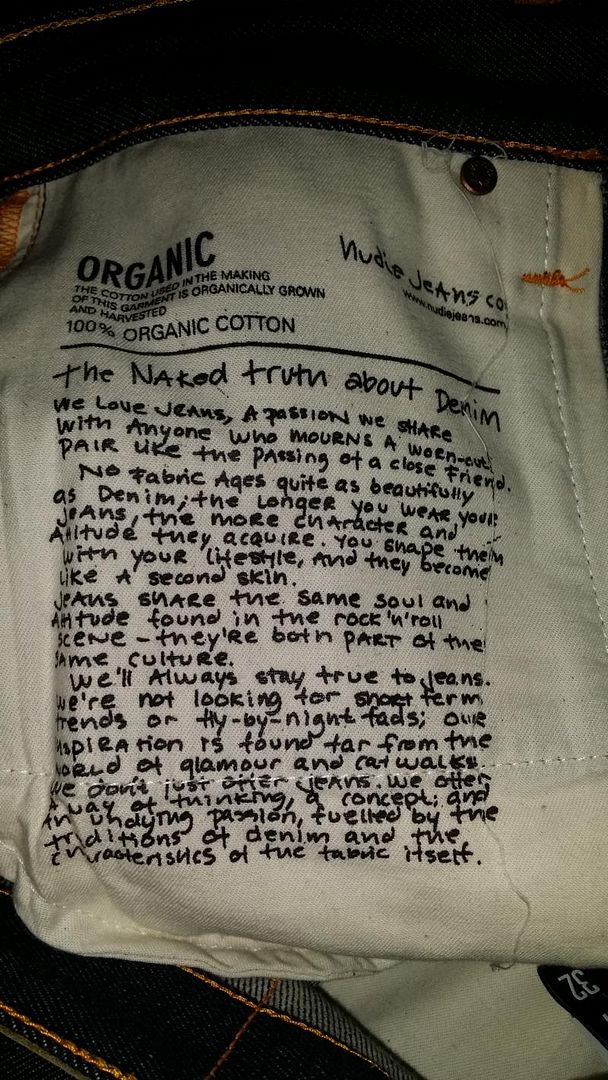 ORGANIC
THE COTTON USED IN THE MAKING
OF THIS GARMENT IS ORGANICALLY GROWN
AND HARVESTED
100% ORGANIC COTTON
Nudie Jeans co
www.nudiejeans.com
The Naked truth about Denim
We Love Jeans, A passion we share
with Anyone who mourns a worn-out
pair like the passing of a close friend.
No fabric Ages quite as beautifully
as Denim; the longer you wear your
Jeans, the more character and
Attitude they acquire. You shape them
with your lifestyle, and they become
like a second skin.
Jeans share the same soul and
Attitude found in the rock'n'roll
scene - they're both part of the
same culture.
We'll Always stay true to Jeans.
We're not looking for short term
trends or fly-by-night fads; our
inspiration is found far from the
world of glamour and catwalks.
We don't just offer jeans. We offer
a way of thinking, a concept; and
an undying passion, fuelled by the
traditions of denim and the
characteristics of the fabric itself.
32